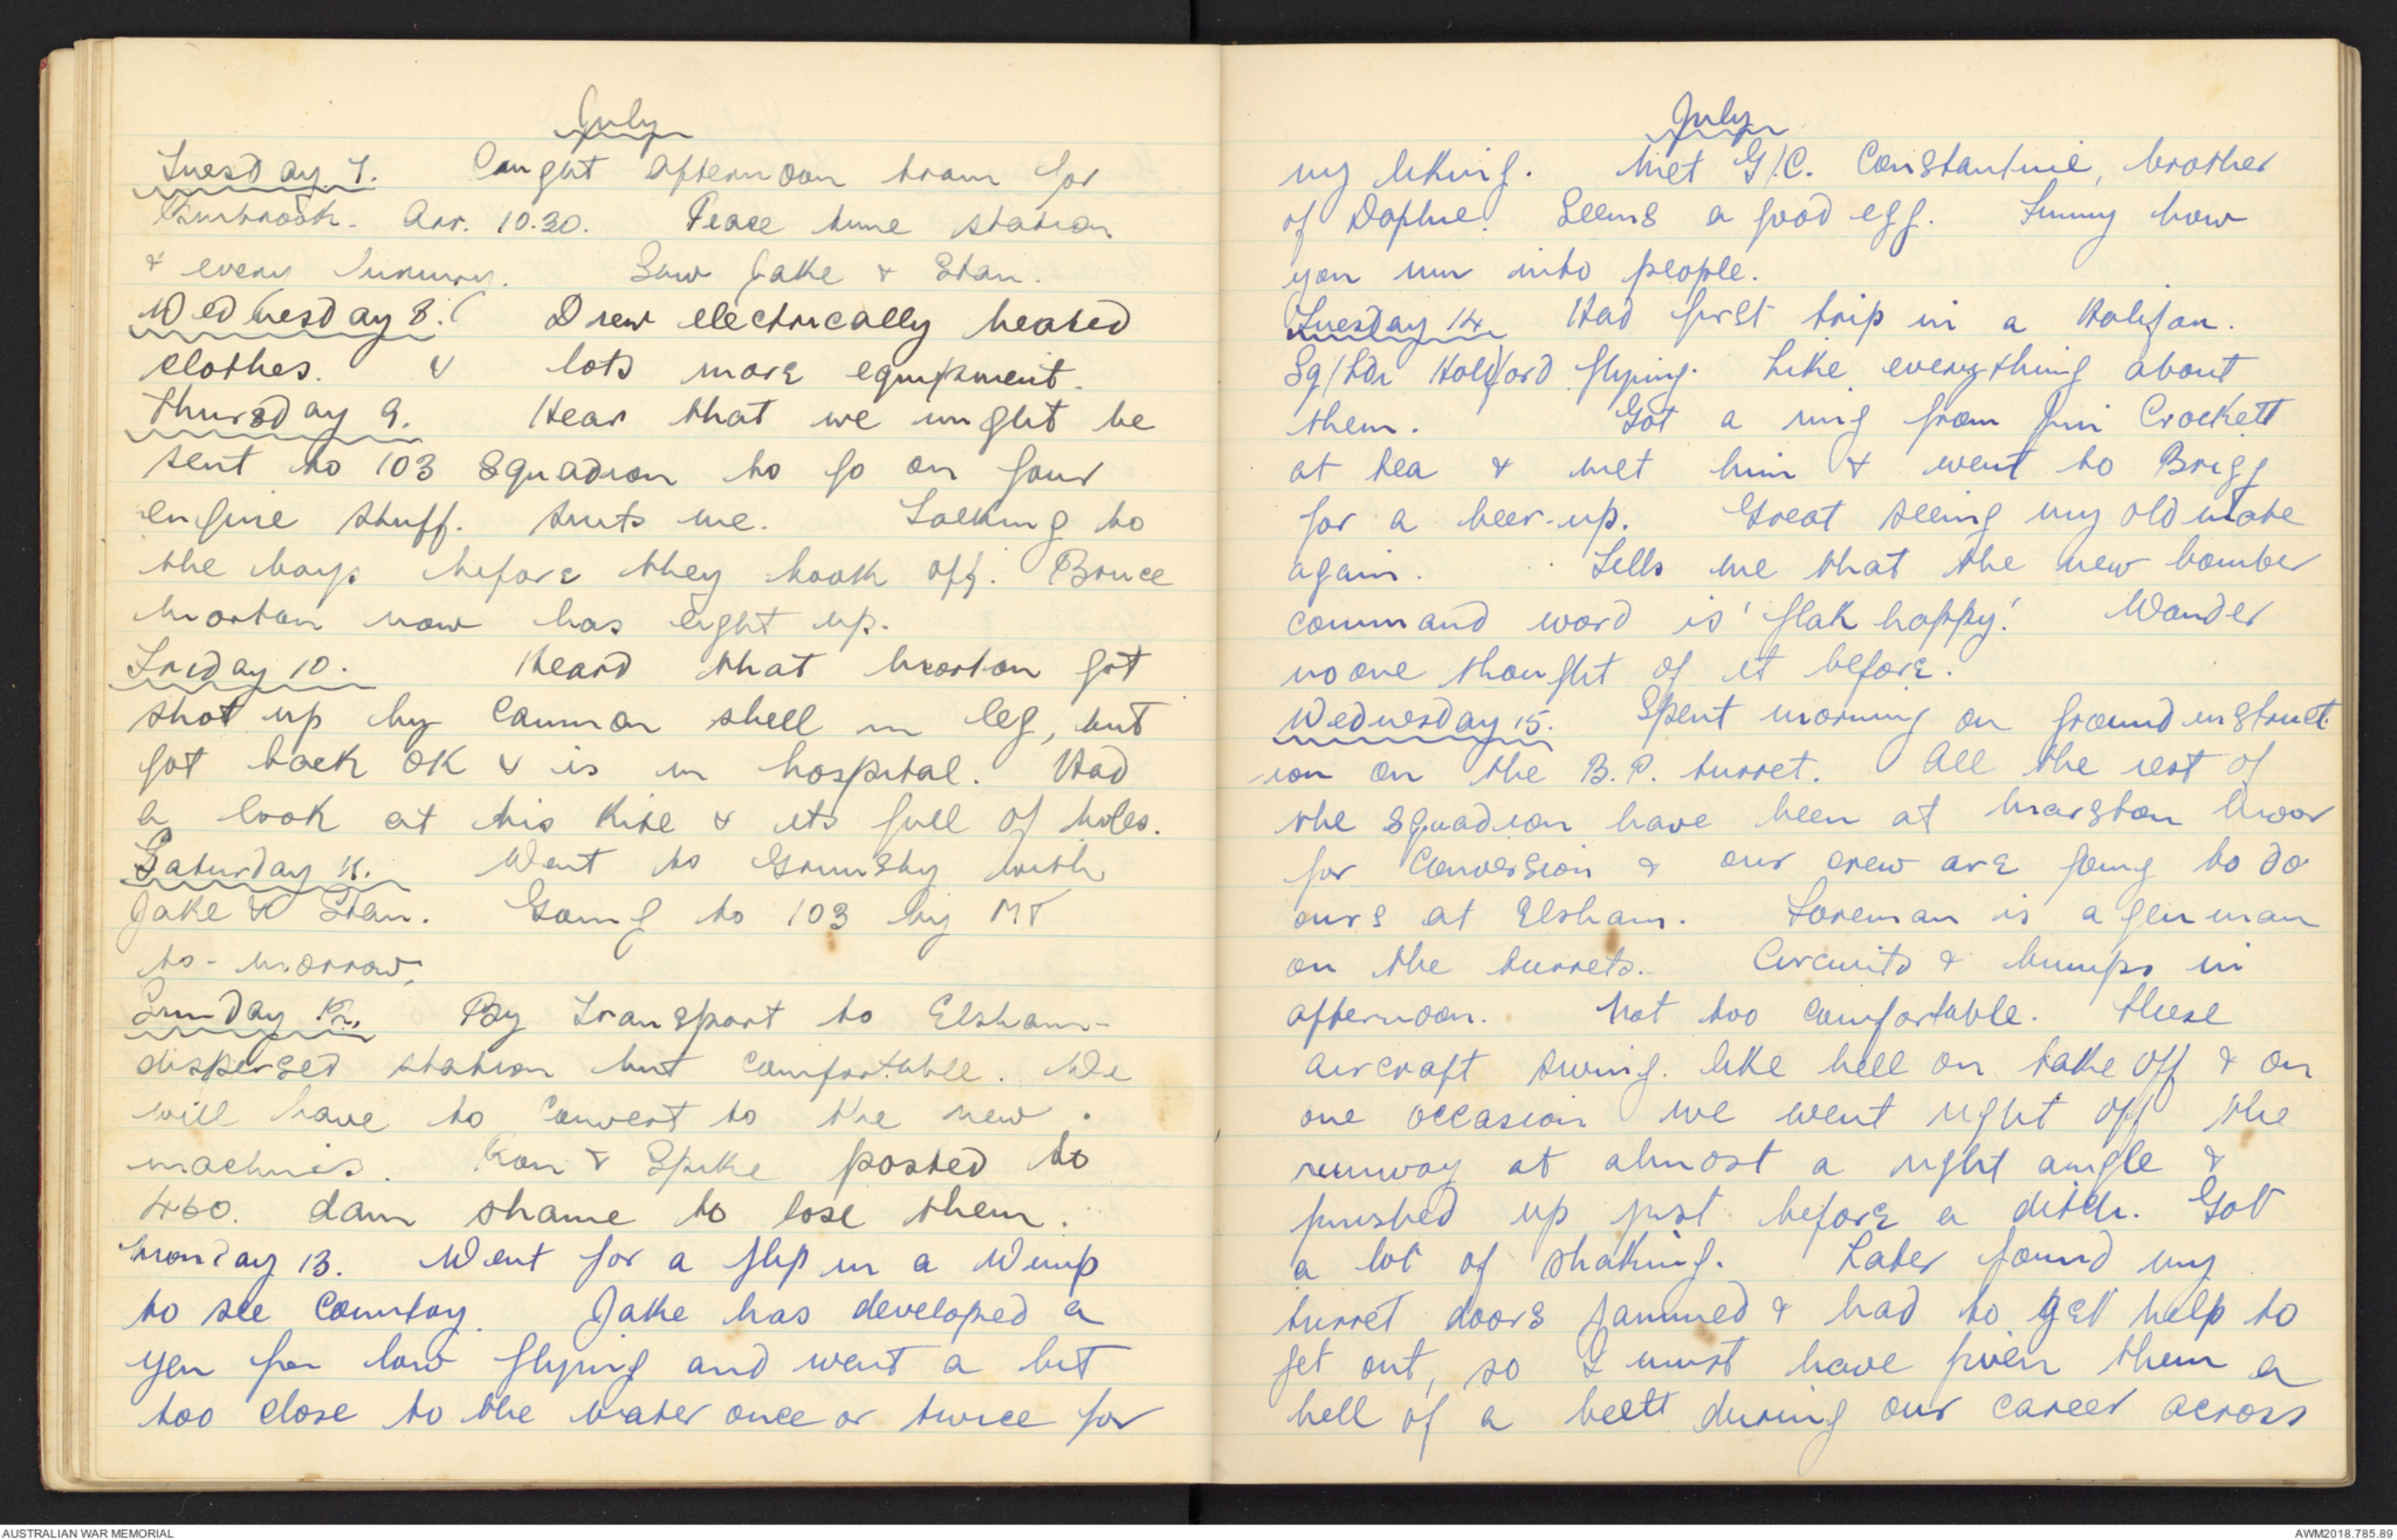 July
Tuesday 7. Caught afternoon train for
Binbrook. Arr. 10.30. Peace time station
& every luxury. Saw Jake & Stan.
Wednesday 8. Drew electrically heated
clothes. & lots more equipment.
Thursday 9. Hear that we might be
sent to 103 squadron to go on four
engine stuff. Suits me. Talking to
the boys before they took off. Bruce
Morton now has eight up.
Friday 10. Heard that Morton got
shot up by cannon shell in leg, but
got back OK & is in hospital. Had
a look at his kite & its full of holes.
Saturday 11. Went to Grimsby with
Jake & Stan. Going to 103 by MT
to-morrow.
Sunday 12. By transport to Elsham-
dispersed station but comfortable. We
will have to convert to the new
machines. Ron & Spike posted to
460. dam shame to lose them.
Monday 13. Went for a flip in a Wimp
to see country. Jake has developed a
yen for low flying and went a bit
too close to the water once or twice for
July
my liking. Met G/C. Constantine, brother
of Daphne. Seems a good egg. Funny how
you run into people.
Tuesday 14. Had first trip in a Halifax.
Sq/Ldr Holford flying. Like everything about
them. Got a ring from Jim Crockett
at tea & met him & went to Brigg
for a beer-up. Great seeing my old mate
again. Tells me that the new bomber
command word is 'flak happy'. Wonder
no one thought of it before.
Wednesday 15. Spent morning on ground instruct
-ion on the B.P. turret. All the rest of
the squadron have been at Marston Moor
for conversion & our crew are going to do
ours at Elsham. Foreman is a gen man
on the turrets. Circuits & bumps in
afternoon. Not too comfortable. These
aircraft swing like hell on take off & on
one occasion we went right off the
runway at almost a right angle &
finished up just before a ditch. Got
a lot of shaking. Later found my
turret doors jammed & had to get help to
get out, so I must have given them a
hell of a belt during our career across
AUSTRALIAN WAR MEMORIAL
AWM2018.785.89